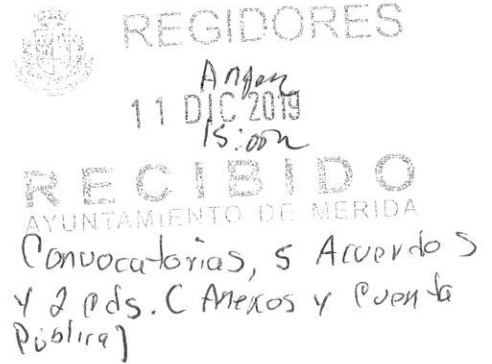 REGIDORES
11 DIC 2019
15:00h
RECIBIDO
AYUNTAMIENTO DE MERIDA
Convocatorias, 5 Acuerdos
y 2 cds. ( Anexos y Cuenta
Pública)